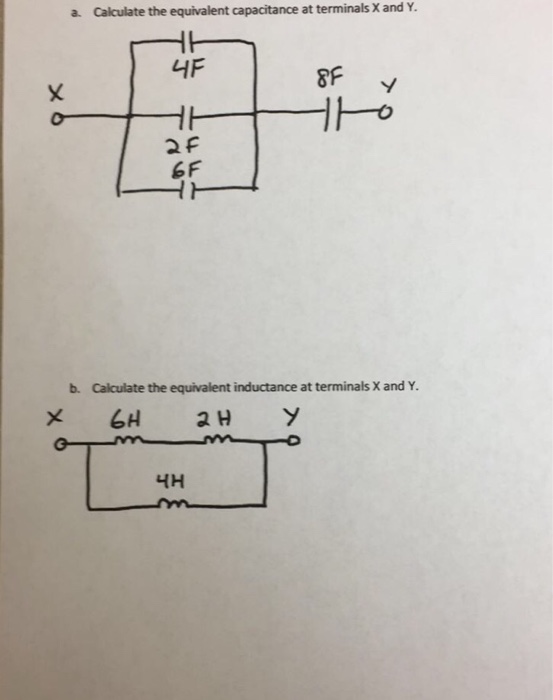 a. Calculate the equivalent capacitance at terminals X and Y.
4F
8F
X
Y
2F
6F
b. Calculate the equivalent inductance at terminals X and Y.
X 6H 2H Y
4H